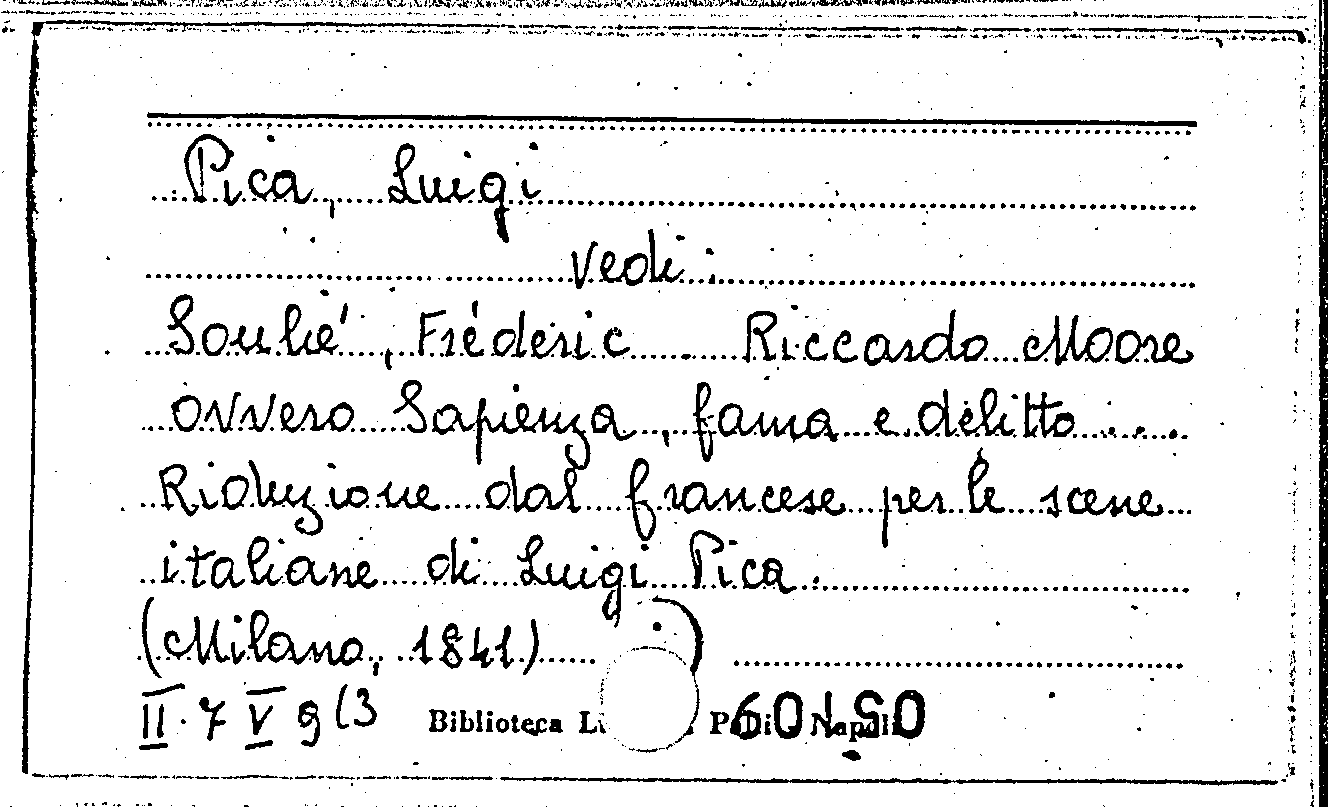 Pica, Luigi
vedi:
Soulié, Fréderic Riccardo Moore
ovvero Sapienza, fama e delitto....
Riduzione dal francese per le scene
italiane di Luigi Pica.
(Milano, 1841)
II. 7 V 9 (3 Biblioteca